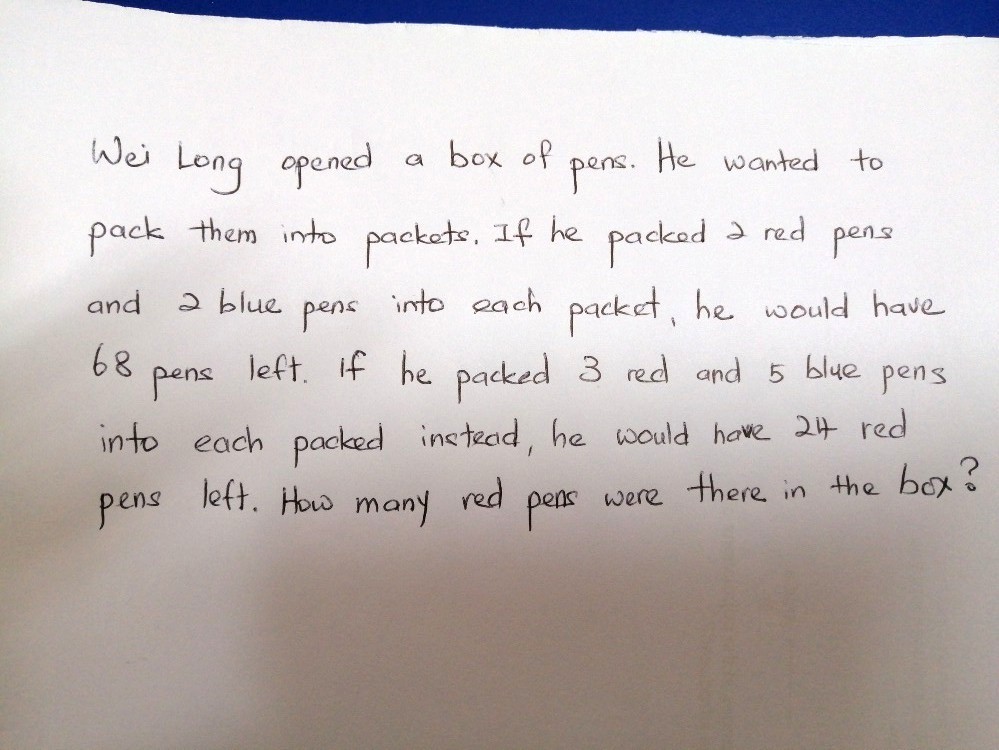 Wei Long opened a box of pens. He wanted to
pack them into packets. If he packed 2 red pens
and 2 blue pens into each packet, he would have
68 pens left. If he packed 3 red and 5 blue pens
into each packed instead, he would have 24 red
pens left. How many red pens were there in the box?